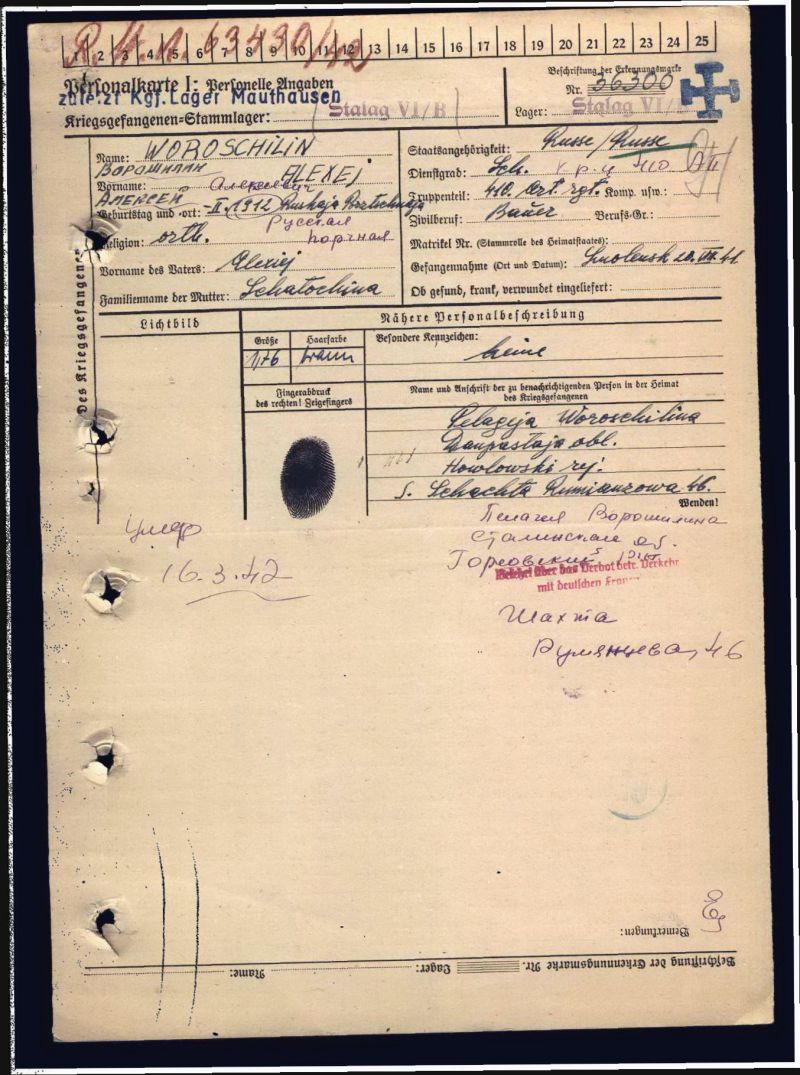 R.M.A. 63490/42
1 2 3 4 5 6 7 8 9 10 11 12 13 14 15 16 17 18 19 20 21 22 23 24 25
Personalkarte I: Personelle Angaben
zuletzt Kgf.Lager Mauthausen
Kriegsgefangenen=Stammlager: Stalag VI/B
Beschriftung der Erkennungsmarke
Nr. 36300
Lager: Stalag VI/B
Des Kriegsgefangenen
Name: WOROSCHILIN
Ворошилин
Vorname: ALEXEJ
Алексей Алексеевич
Geburtstag und =ort: -II.1912
Русская
Religion: orth.
Vorname des Vaters: Alexiej
Familienname der Mutter: Schatochina
Staatsangehörigkeit: Russe/Russe
Dienstgrad: Sch.
Truppenteil: 410. Art. rgt. Komp. usw.:
Zivilberuf: Bauer Berufs-Gr.:
Matrikel Nr. (Stammrolle des Heimatstaates):
Gefangennahme (Ort und Datum): Smolensk 20.VII.41
Ob gesund, krank, verwundet eingeliefert:
Lichtbild
Nähere Personalbeschreibung
Größe Haarfarbe
1,76 braun
Besondere Kennzeichen:
keine
Fingerabdruck
des rechten! Zeigefingers
Name und Anschrift der zu benachrichtigenden Person in der Heimat
des Kriegsgefangenen
Pelagija Woroschilina
obl.
rej.
s. Schachta Rumianzowa 46.
Wenden!
умер
16.3.42
Пелагея Ворошилина
Сталинская об.
Горловский
Belehrt über das Verbot betr. Verkehr
mit deutschen Frauen
Шахта
Румянцева, 46
Bemerkungen:
Beschriftung der Erkennungsmarke Nr. Lager: Name: